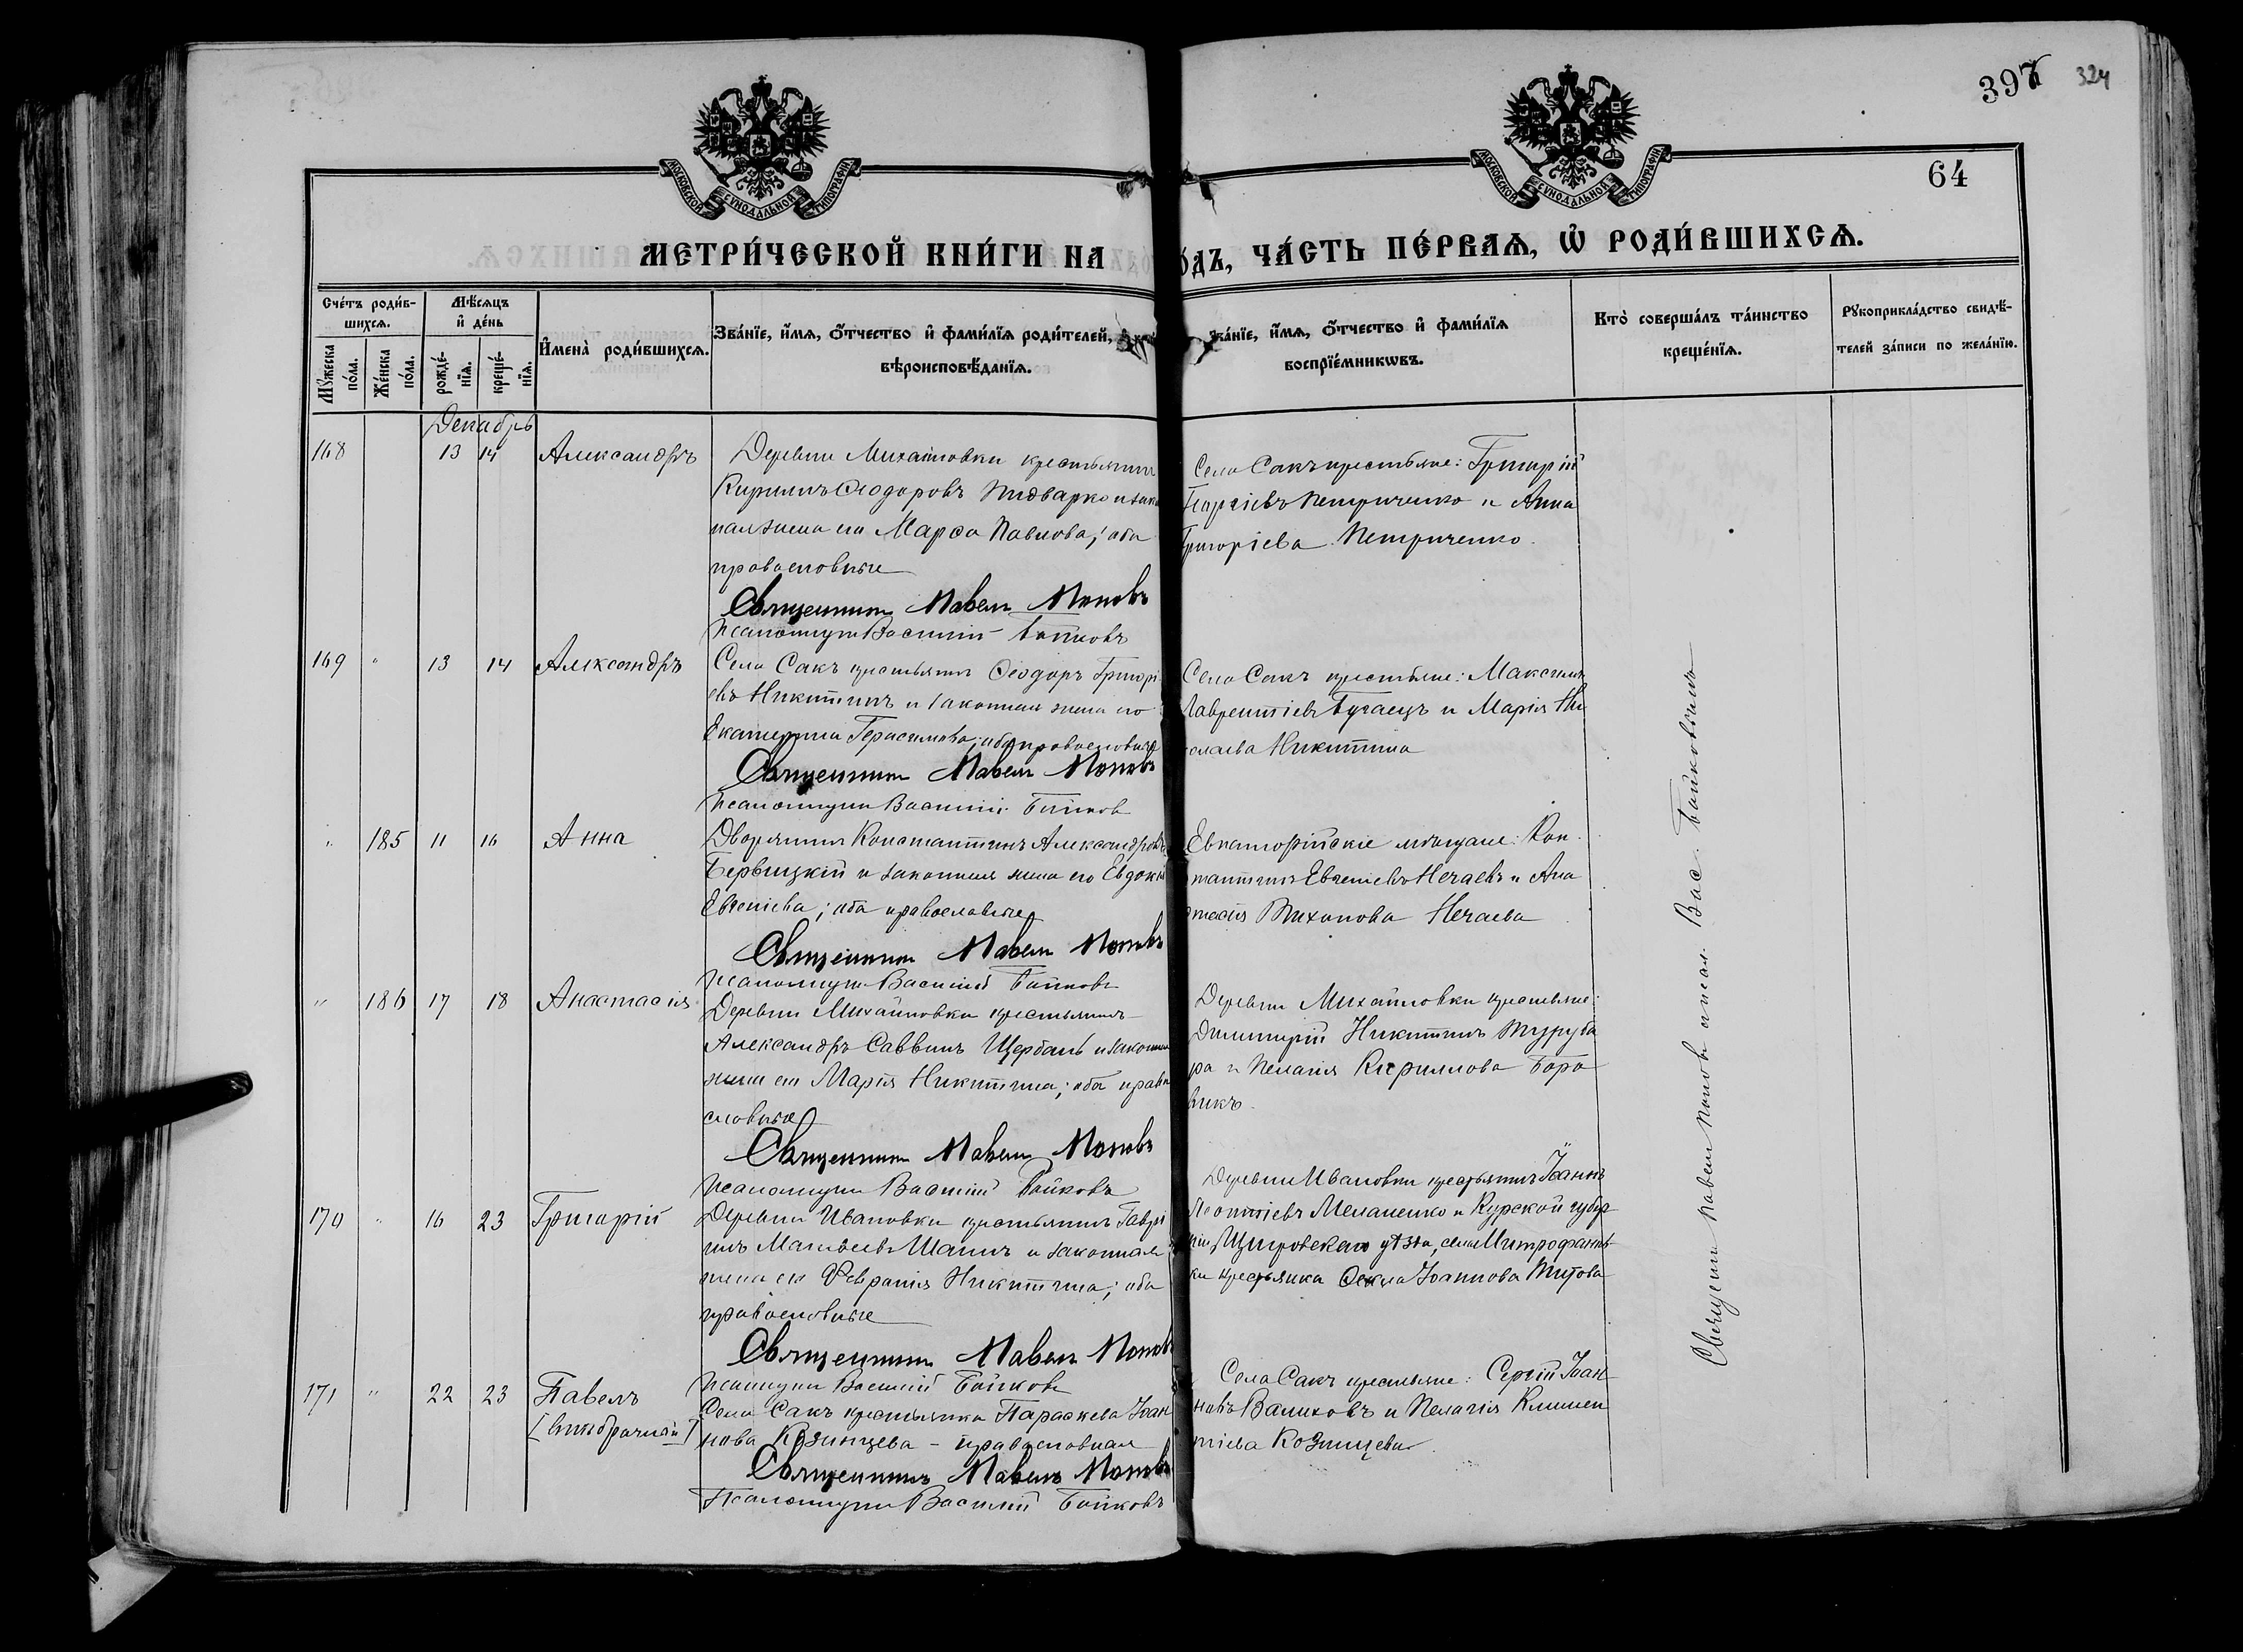 397 324
64
МОСКОВСКОЙ СѴНОДАЛЬНОЙ ТИПОГРАФІИ
МОСКОВСКОЙ СѴНОДАЛЬНОЙ ТИПОГРАФІИ
МЕТРИ́ЧЕСКОЙ КНИ́ГИ НА
О́ДЪ, ЧА́СТЬ ПЕ́РВАѦ, Ѡ҆ РОДИ́ВШИХСѦ.
Сче́тъ роди́в-
шихсѧ.
Мꙋ́жеска по́ла.
Же́нска по́ла.
Мѣ́сѧцъ
и҆ де́нь
рожде́-
нїѧ.
креще́-
нїѧ.
И҆мена̀ роди́вшихсѧ.
Зва́нїе, и҆́мѧ, ѻ҆́тчество и҆ фами́лїѧ роди́телей,
вѣроисповѣ́данїѧ.
ва́нїе, и҆́мѧ, ѻ҆́тчество и҆ фами́лїѧ
воспрїе́мникѡвъ.
Кто̀ соверша́лъ та́инство
креще́нїѧ.
Рꙋкоприкла́дство свидѣ́-
телей за́писи по жела́нїю.
Декабрь
168 13 14 Александръ
Деревни Михайловки крестьянинъ
Кириллъ Ѳеодоровъ Пидварко и зако
ная жена его Марѳа Павлова; оба
православные
Священникъ Павелъ Поповъ
Псаломщикъ Василій Байковъ
Села Сакъ крестьяне: Григорій
Георгіевъ Петриченко и Анна
Григоріева Петриченко.
169 " 13 14 Александръ
Села Сакъ крестьянинъ Ѳеодоръ Григорі
евъ Никитинъ и законная жена его
Екатерина Герасимова; оба православные
Священникъ Павелъ Поповъ
Псаломщикъ Василій Байковъ
Села Сакъ крестьяне: Максимъ
Лаврентіевъ Бугаецъ и Марія Ни
колаева Никитина
" 185 11 16 Анна
Дворянинъ Константинъ Александровъ
Бервицкій и законная жена его Евдокія
Евгеніева; оба православные
Священникъ Павелъ Поповъ
Псаломщикъ Василій Байковъ
Евпаторійскіе мѣщане: Кон
стантинъ Евгеніевъ Нечаевъ и Ана
стасія Тихонова Нечаева
" 186 17 18 Анастасія
Деревни Михайловки крестьянинъ
Александръ Саввинъ Щербань и законная
жена его Марія Никитина; оба право
славные
Священникъ Павелъ Поповъ
Псаломщикъ Василій Байковъ
Деревни Михайловки крестьяне:
Димитрій Никитинъ Туруба
ра и Пелагія Кириллова Боро
викъ.
170 " 16 23 Григорій
Деревни Ивановки крестьянинъ Гаврі
илъ Матвѣевъ и законная
жена его Февронія Никитина; оба
православные
Священникъ Павелъ Поповъ
Псаломщикъ Василій Байковъ
Деревни Ивановки крестьянинъ Іоаннъ
Леонтіевъ Меланенко и Курской губер
ніи, Щигровскаго уѣзда, села Митрофанов-
ки крестьянка Ѳекла Іоаннова Титова
171 " 22 23 Павелъ
[внѣбрачный]
Села Сакъ крестьянка Параскева Іоан
нова Козинцева - православная
Священникъ Павелъ Поповъ
Псаломщикъ Василій Байковъ
Села Сакъ крестьяне: Сергій Іоан
новъ Валиховъ и Пелагія Климен
тіева Козинцева.
Священникъ Павелъ Поповъ съ псал. Вас. Байковымъ